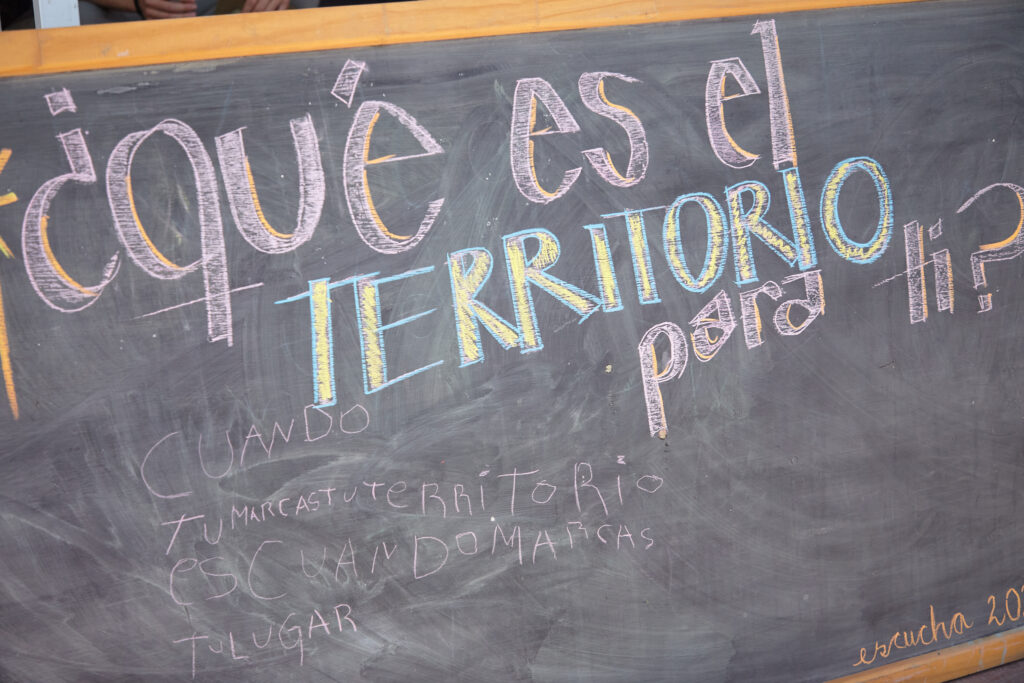 ¿qué es el
TERRITORIO
para ti?
CUANDO
TU MARCAS TU TERRITORIO
ES CUANDO MARCAS
TU LUGAR
escucha